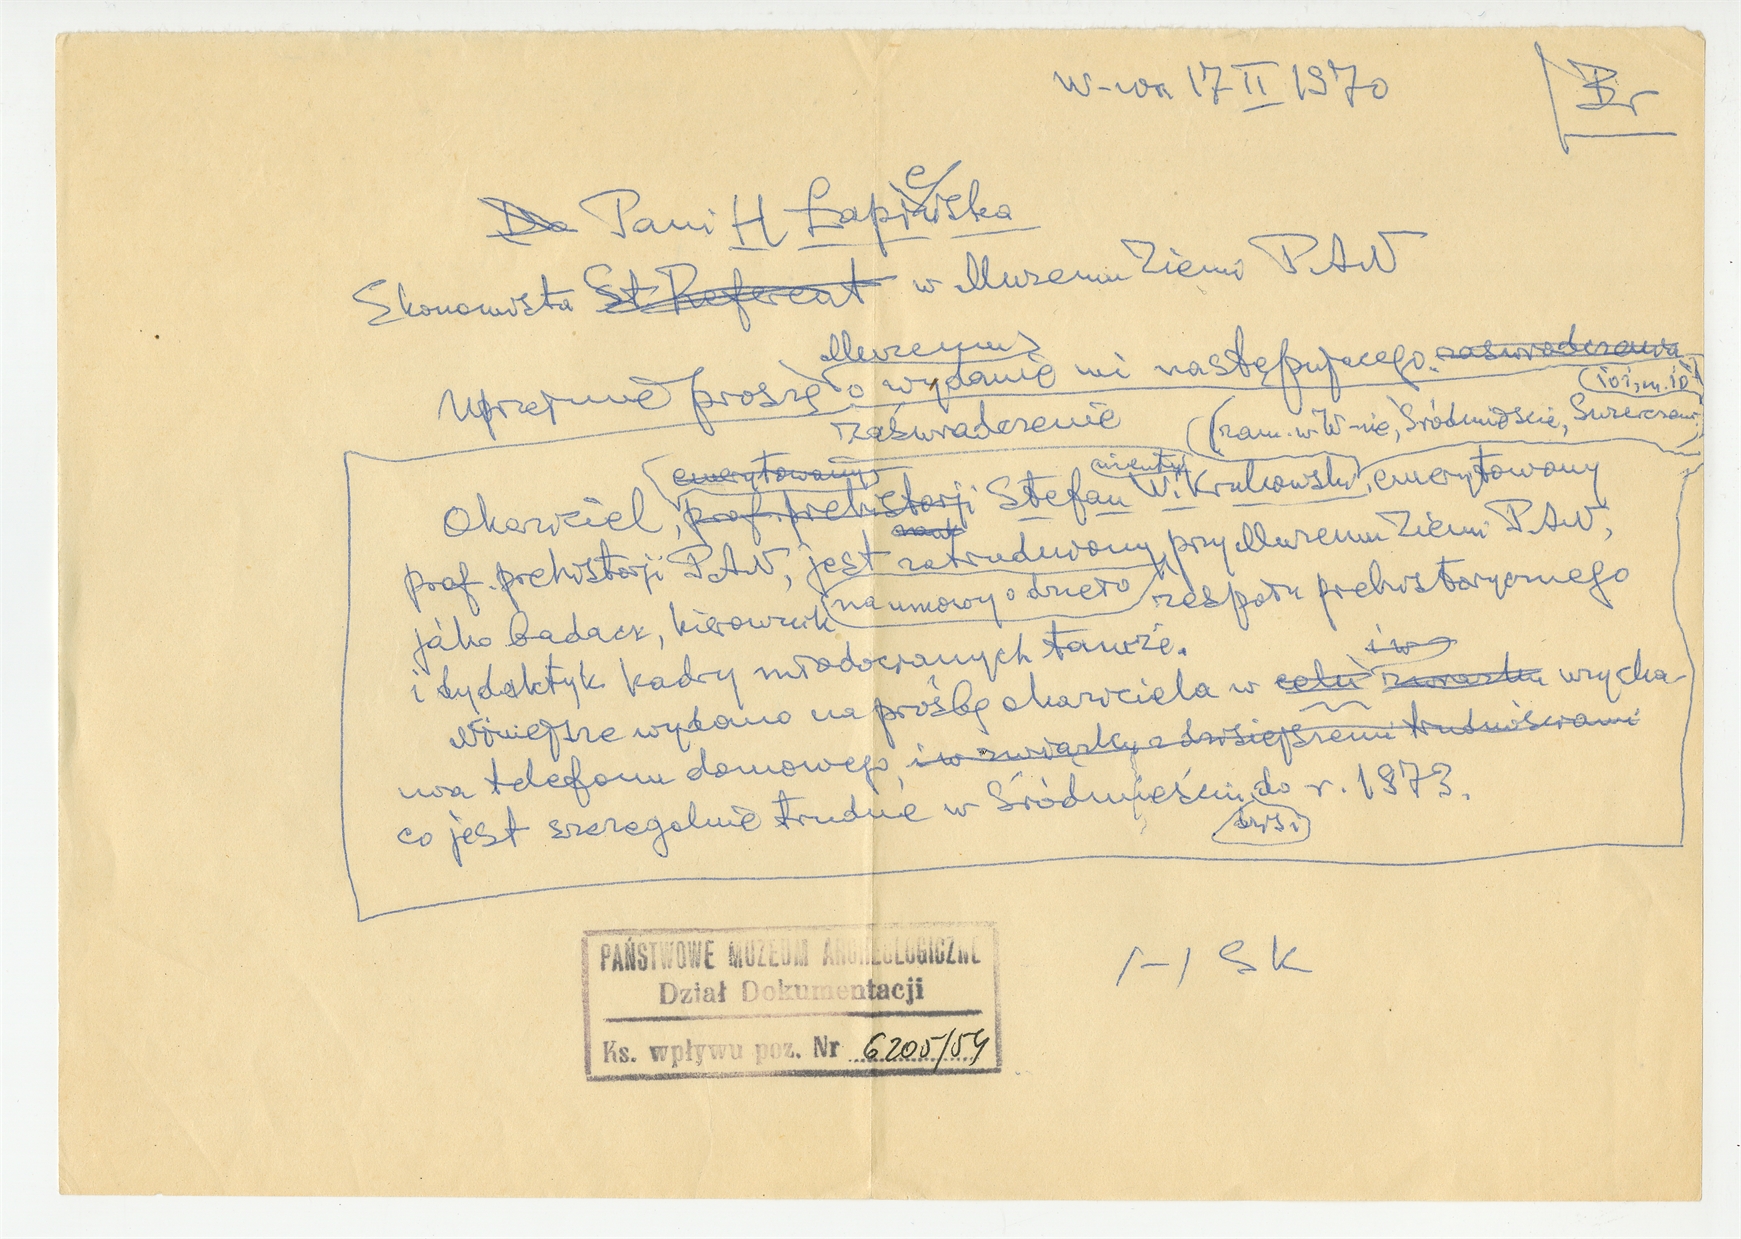 W-wa 17 II 1970
Br
Do Pani H Łapieńska
Ekonomista St. Referent w Muzeum Ziemi PAN
Muzeum
Uprzejmie proszę o wydanie mi następującego zaświadczenia
zaświadczenie (zam. w W-wie, Śródmieście,
emerytowany
Okaziciel, prof. prehistorji Stefan W. Krukowski, emerytowany
prof. prehistorji PAN, jest zatrudniony przy Muzeum Ziemi PAN,
jako badacz, kierownik na umowy o dzieło zespołu prehistorycznego
i dydaktyk kadry młodocianych tamże.
i w
Niniejsze wydano na prośbę okaziciela w celu związku uzyska-
nia telefonu domowego, i w związku z dzisiejszemi trudnościami
co jest szczególnie trudne w Śródmieściu do r. 1973.
dziś
/-/ SK
PAŃSTWOWE MUZEUM ARCHEOLOGICZNE
Dział Dokumentacji
Ks. wpływu poz. Nr 6205/54